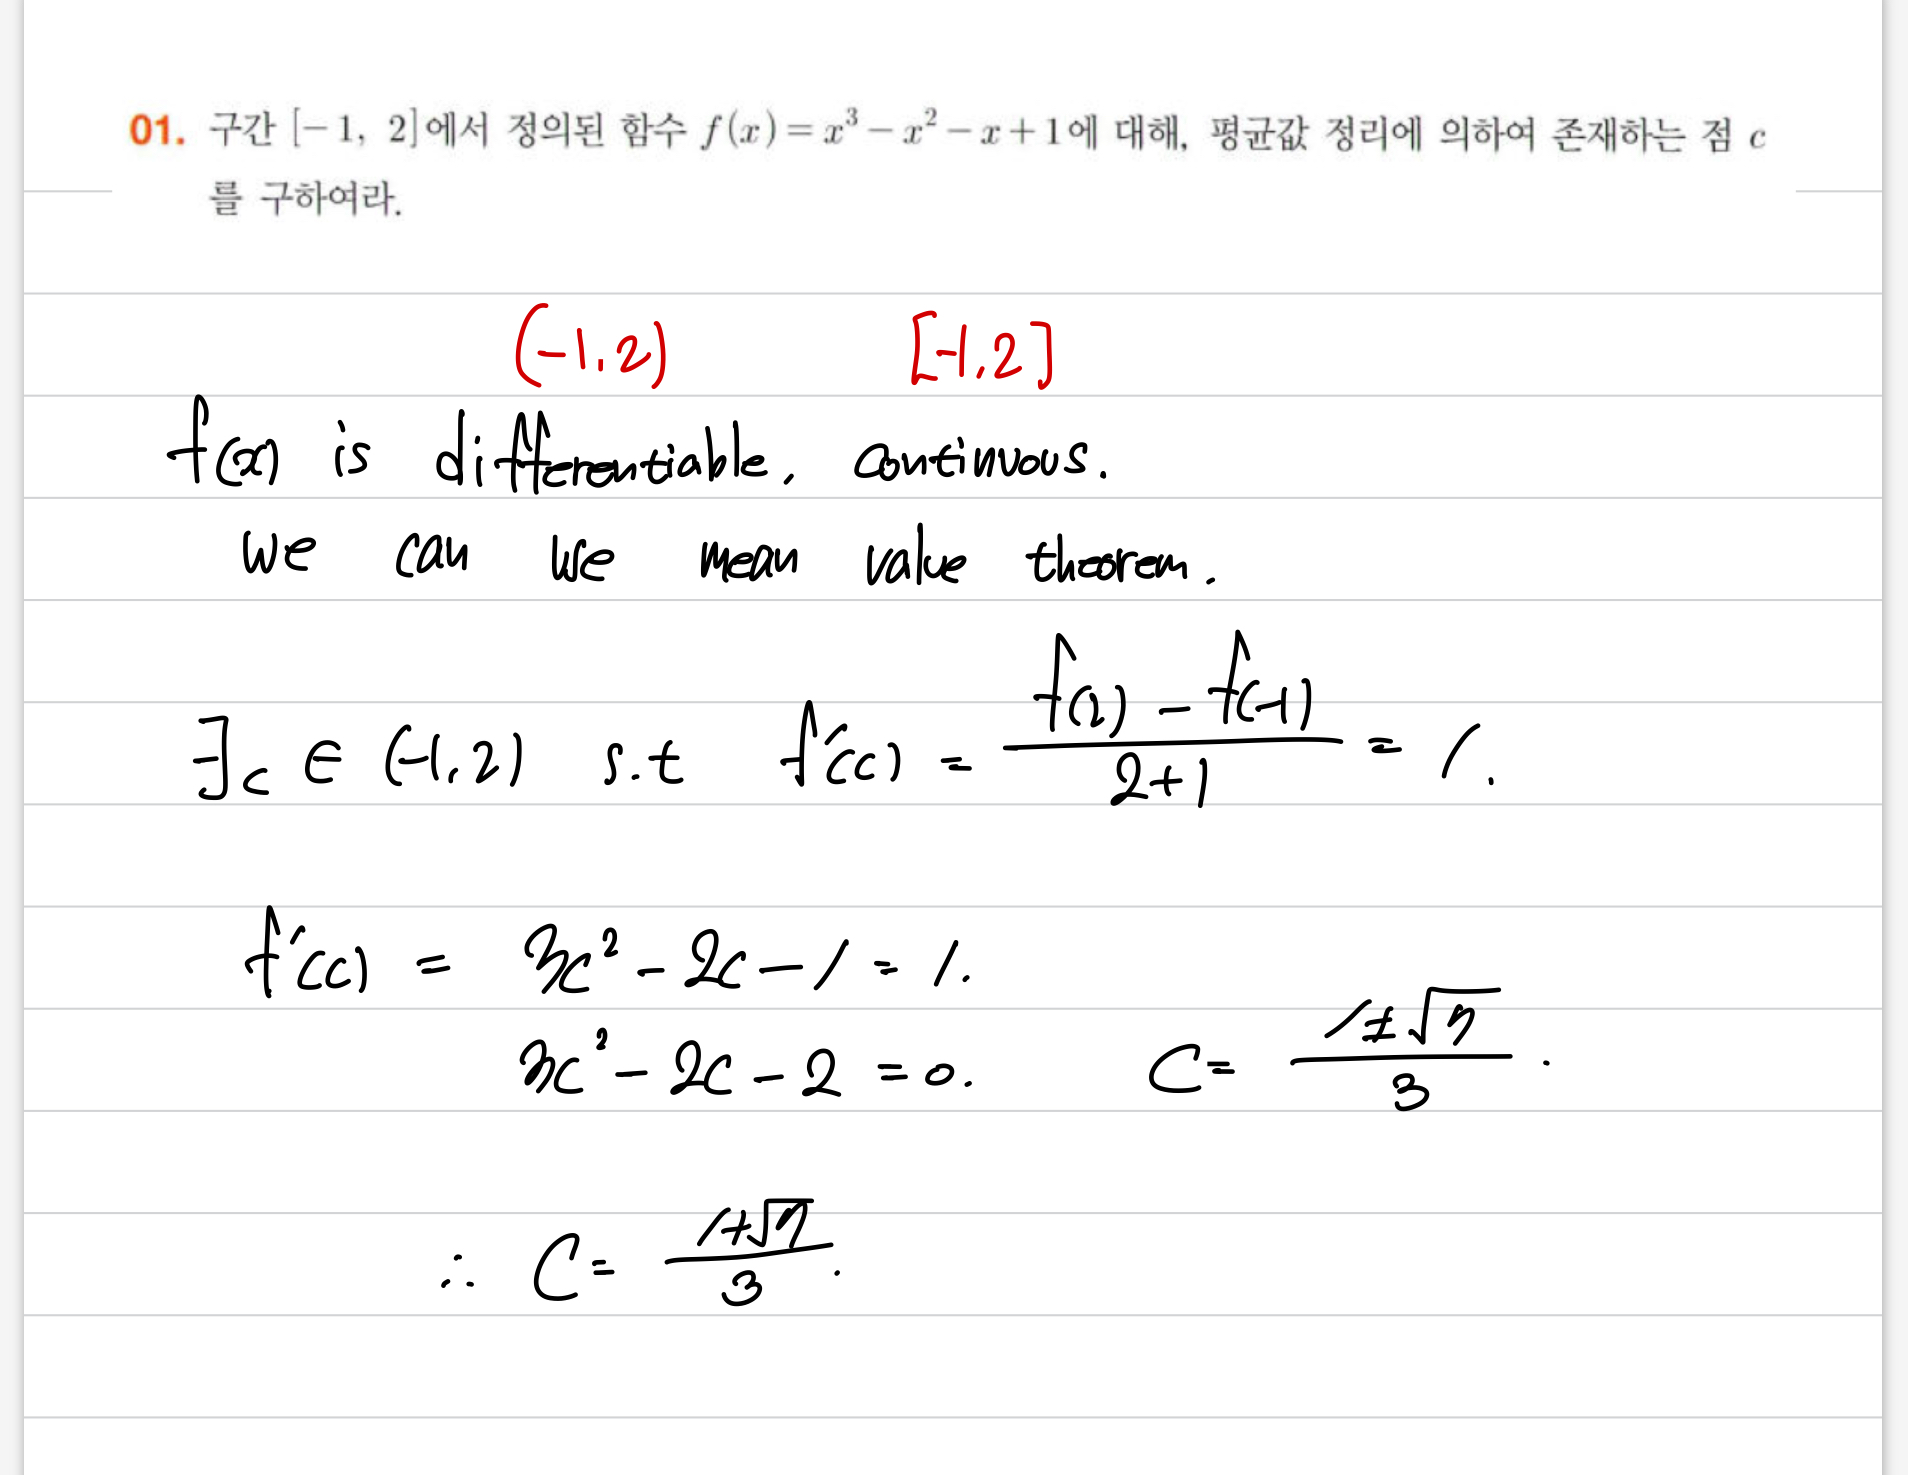 01. 구간 [-1, 2]에서 정의된 함수 f(x)=x³-x²-x+1에 대해, 평균값 정리에 의하여 존재하는 점 c
를 구하여라.
(-1,2) [-1,2]
f(x) is differentiable, continuous.
we can use mean value theorem.
∃c ∈ (-1,2) s.t f'(c) = (f(2) - f(-1))/(2+1) = 1.
f'(c) = 3c² - 2c - 1 = 1.
3c² - 2c - 2 = 0. C = (1±√7)/3.
∴ C = (1+√7)/3.